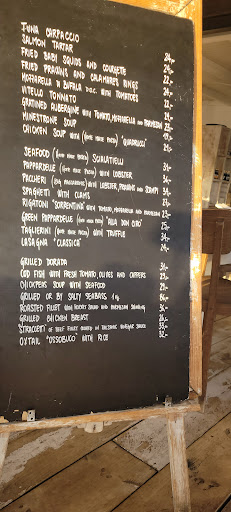 TUNA CARPACCIO 24,-
SALMON TARTAR 24,-
FRIED BABY SQUIDS AND COURGETTE
FRIED PRAWNS AND CALAMARES RINGS
MOZZARELLA DI BUFALA D.O.C. WITH TOMATOES
VITELLO TONNATO
GRATINED AUBERGINE WITH TOMATO, MOZZARELLA AND PARMESAN
MINESTRONE SOUP
CHICKEN SOUP WITH (HOME MADE PASTA) "QUADRUCCI"
SEAFOOD (HOME MADE PASTA) SCIALATIELLI
PAPPARDELLE (HOME MADE PASTA) WITH LOBSTER
PACCHERI (BIG MACCARONI) WITH LOBSTER, PRAWNS AND SHRIMPS
SPAGHETTI WITH CLAMS
RIGATONI "SORRENTINA" WITH TOMATO, MOZZARELLA AND PARMESAN
GREEN PAPPARDELLE (HOME MADE PASTA) "ALLA DON CIRO"
TAGLIERINI (HOME MADE PASTA) WITH TRUFFLE
LASAGNA "CLASSICA" 24,-
GRILLED DORADA
COD FISH WITH FRESH TOMATO, OLIVES AND CAPPERS
CHICKPEAS SOUP WITH SEAFOOD
GRILLED OR BY SALTY SEABASS 1 Kg
ROASTED FILLET WITH ROCKET SALAD AND PARMESAN SHAVING
GRILLED CHICKEN BREAST
STRACCETTI OF BEEF FILLET BOILED IN BALSAMIC VINEGAR SAUCE
OXTAIL "OSSOBUCO" WITH RICE 32,-